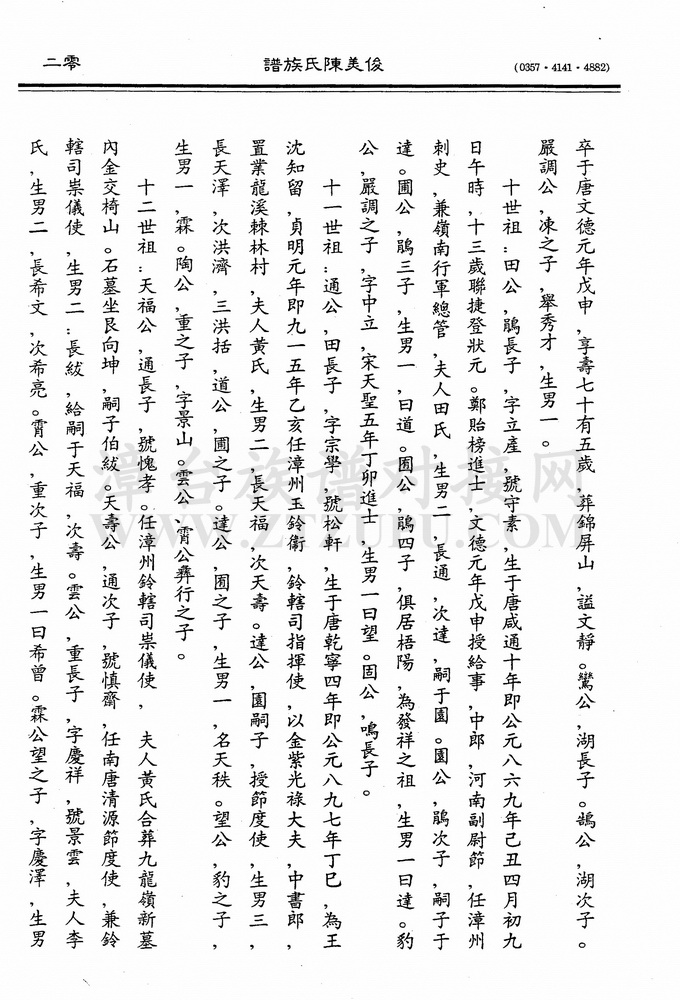 二零
譜族氏陳美俊
(0357・4141・4882)
卒于唐文德元年戊申，享壽七十有五歲，葬錦屏山，謚文靜。鸞公，湖長子。鵠公，湖次子。
嚴調公，凍之子，舉秀才，生男一。
十世祖：田公，鵑長子，字立產，號守素，生于唐咸通十年即公元八六九年己丑四月初九
日午時，十三歲聯捷登狀元。鄭貽榜進士，文德元年戊申授給事，中郎，河南副尉節，任漳州
刺史，兼嶺南行軍總管，夫人田氏，生男二，長通，次達，嗣于園。園公，鵑次子，嗣子于
達。圃公，鵑三子，生男一，曰道。圉公，鵑四子，俱居梧陽，為發祥之祖，生男一曰達。豹
公，嚴調之子，字中立，宋天聖五年丁卯進士，生男一曰望。固公，鳴長子。
十一世祖：通公，田長子，字宗學，號松軒，生于唐乾寧四年即公元八九七年丁巳，為王
沈知留，貞明元年即九一五年乙亥任漳州玉鈴衛，鈴轄司指揮使，以金紫光祿大夫，中書郎，
置業龍溪棘林村，夫人黃氏，生男二，長天福，次天壽。達公，園嗣子，授節度使，生男三，
長天澤，次洪濟，三洪括，道公，圃之子。達公，圉之子，生男一，名天秩。望公，豹之子，
生男一，霖。陶公，重之子，字景山。雲公、霄公彝行之子。
十二世祖：天福公，通長子，號愧孝。任漳州鈴轄司崇儀使，夫人黃氏合葬九龍嶺新墓
內金交椅山。石墓坐艮向坤，嗣子伯紱。天壽公，通次子，號慎齋，任南唐清源節度使，兼鈴
轄司崇儀使，生男二：長紱，給嗣于天福，次壽。雲公，重長子，字慶祥，號景雲，夫人李
氏，生男二，長希文，次希亮。霄公，重次子，生男一曰希曾。霖公望之子，字慶澤，生男
漳台族谱对接网
WWW.ZTZUPU.COM